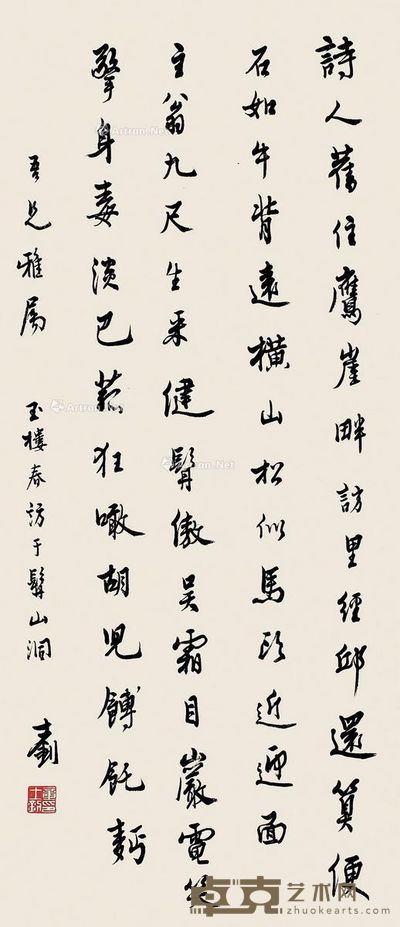 詩人舊住鷹崖畔訪里經邱還算便
石如牛背遠橫山松似馬頭近迎面
主翁九尺生來健髯傲吳霜目巖電笑
擎身毒淡巴菰狂噉胡兒餺飥麪
吾兄雅屬 玉樓春訪于髯山洞 釗
卓克艺术网
zhuokearts.com
Artron.Net